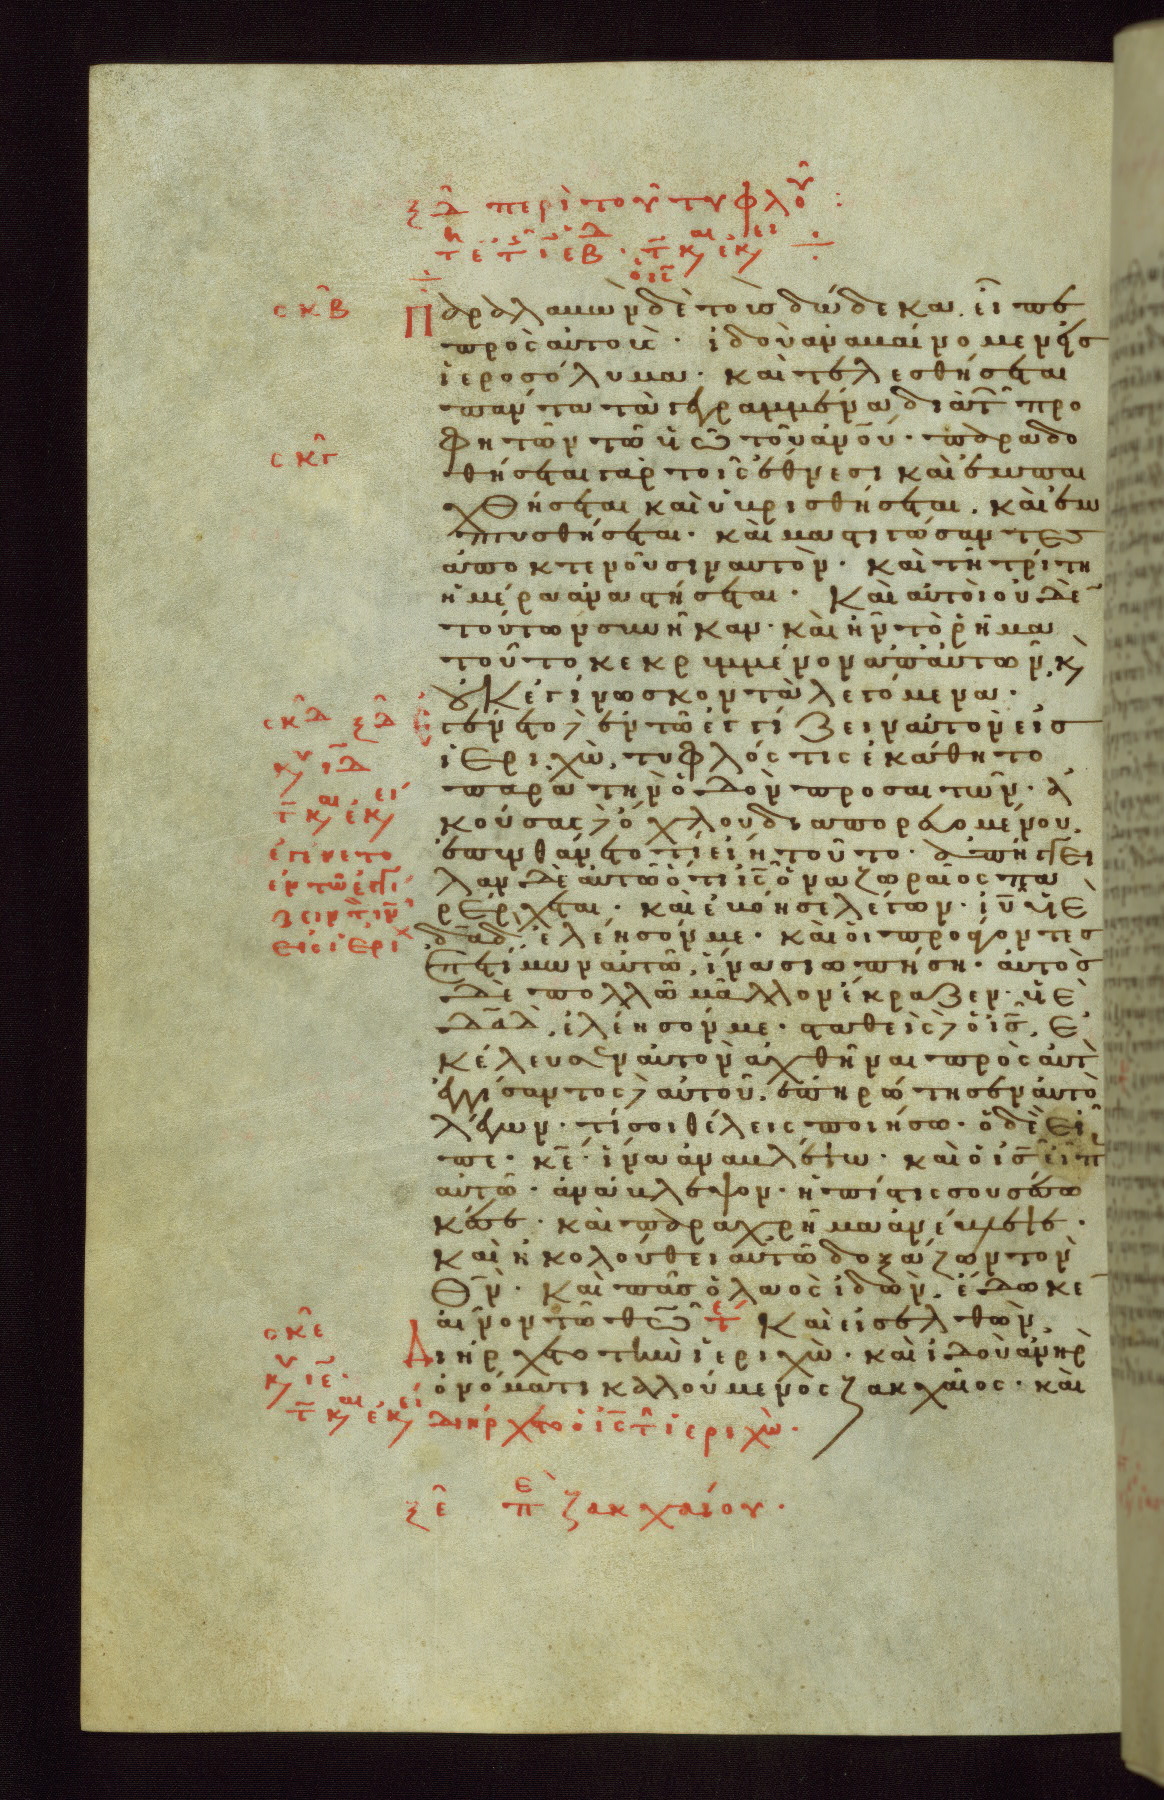 ξδ περὶ τοῦ τυφλοῦ :
σκβ Παραλαβὼν δὲ τοὺς δώδεκα. εἶπε
πρὸς αὐτούς · ἰδοὺ ἀναβαίνομεν εἰς
ἱεροσόλυμα · καὶ τελεσθήσεται
πάντα τὰ γεγραμμένα διὰ τῶν προ
σκγ φητῶν τῶ υἱῶ τοῦ ἀνου · παραδο
θήσεται γὰρ τοῖς ἔθνεσι καὶ ἐμπαι
χθήσεται καὶ ὑβρισθήσεται. καὶ ἐμ
πτυσθήσεται · καὶ μαστιγώσαντες
ἀποκτενοῦσιν αὐτόν · καὶ τῆ τρίτη
ἡμέρα ἀναστήσεται · Καὶ αὐτοὶ οὐδὲν
τούτων συνῆκαν · καὶ ἦν τὸ ῥῆμα
τοῦτο κεκρυμμένον ἀπ' αὐτῶν, καὶ
οὐκ ἐγίνωσκον τὰ λεγόμενα ·
σκδ ξδ Ἐγένετο δὲ ἐν τῶ ἐγγίζειν αὐτὸν εἰς
ἱεριχὼ, τυφλός τις ἐκάθητο
παρὰ τὴν ὁδὸν προσαιτῶν · ἀ
κούσας δὲ ὄχλου διαπορευομένου.
ἐπυνθάνετο τί εἴη τοῦτο · ἀπήγγει
λαν δὲ αὐτῶ ὅτι ις ὁ ναζωραῖος πα
ρέρχεται · καὶ ἐβόησε λέγων · ιυ υἱὲ
δαδ ἐλέησόν με · καὶ οἱ προάγοντες
ἐπετίμων αὐτῶ, ἵνα σιωπήση · αὐτὸς
δὲ πολλῶ μᾶλλον ἔκραζεν · υἱὲ
δαδ, ἐλέησόν με · σταθεὶς δὲ ὁ ις, ἐ
κέλευσεν αὐτὸν ἀχθῆναι πρὸς αὐτὸν
ἐγγίσαντος δὲ αὐτοῦ. ἐπηρώτησεν αὐτὸν
λέγων · τί σοι θέλεις ποιήσω · ὁ δὲ εἶ
πε · κε · ἵνα ἀναβλέψω · καὶ ὁ ις εἶπεν
αὐτῶ · ἀνάβλεψον · ἡ πίστις σου σέσω
κέ σε · καὶ παραχρῆμα ἀνέβλεψε ·
καὶ ἠκολούθει αὐτῶ δοξάζων τὸν
θν · καὶ πᾶς ὁ λαὸς ἰδὼν, ἔδωκεν
σκε αἶνον τῶ θω Καὶ εἰσελθὼν
διήρχετο τὴν ἱεριχὼ · καὶ ἰδοὺ ἀνὴρ
ὀνόματι καλούμενος ζακχαῖος · καὶ
διήρχετο ὁ ις τὴν ἱεριχὼ ·
ἐγίνετο
ἐν τῶ ἐγγί
ζειν τὸν ιν
εἰς ἱεριχ
ξε περὶ ζακχαίου ·